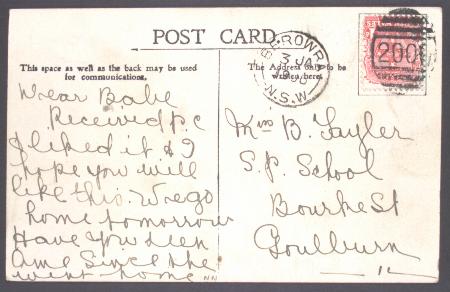 POST CARD.
This space as well as the back may be used
for communications.
The Address only to be
written here.
BEROWRA
3 JA
N.S.W
200
Dear Babe
Received p.c
I liked it & I
hope you will
like this. We go
home tomorrow
Have you seen
Amé since she
went home
Miss B. Tayler
S.P. School
Bourke St
Goulburn